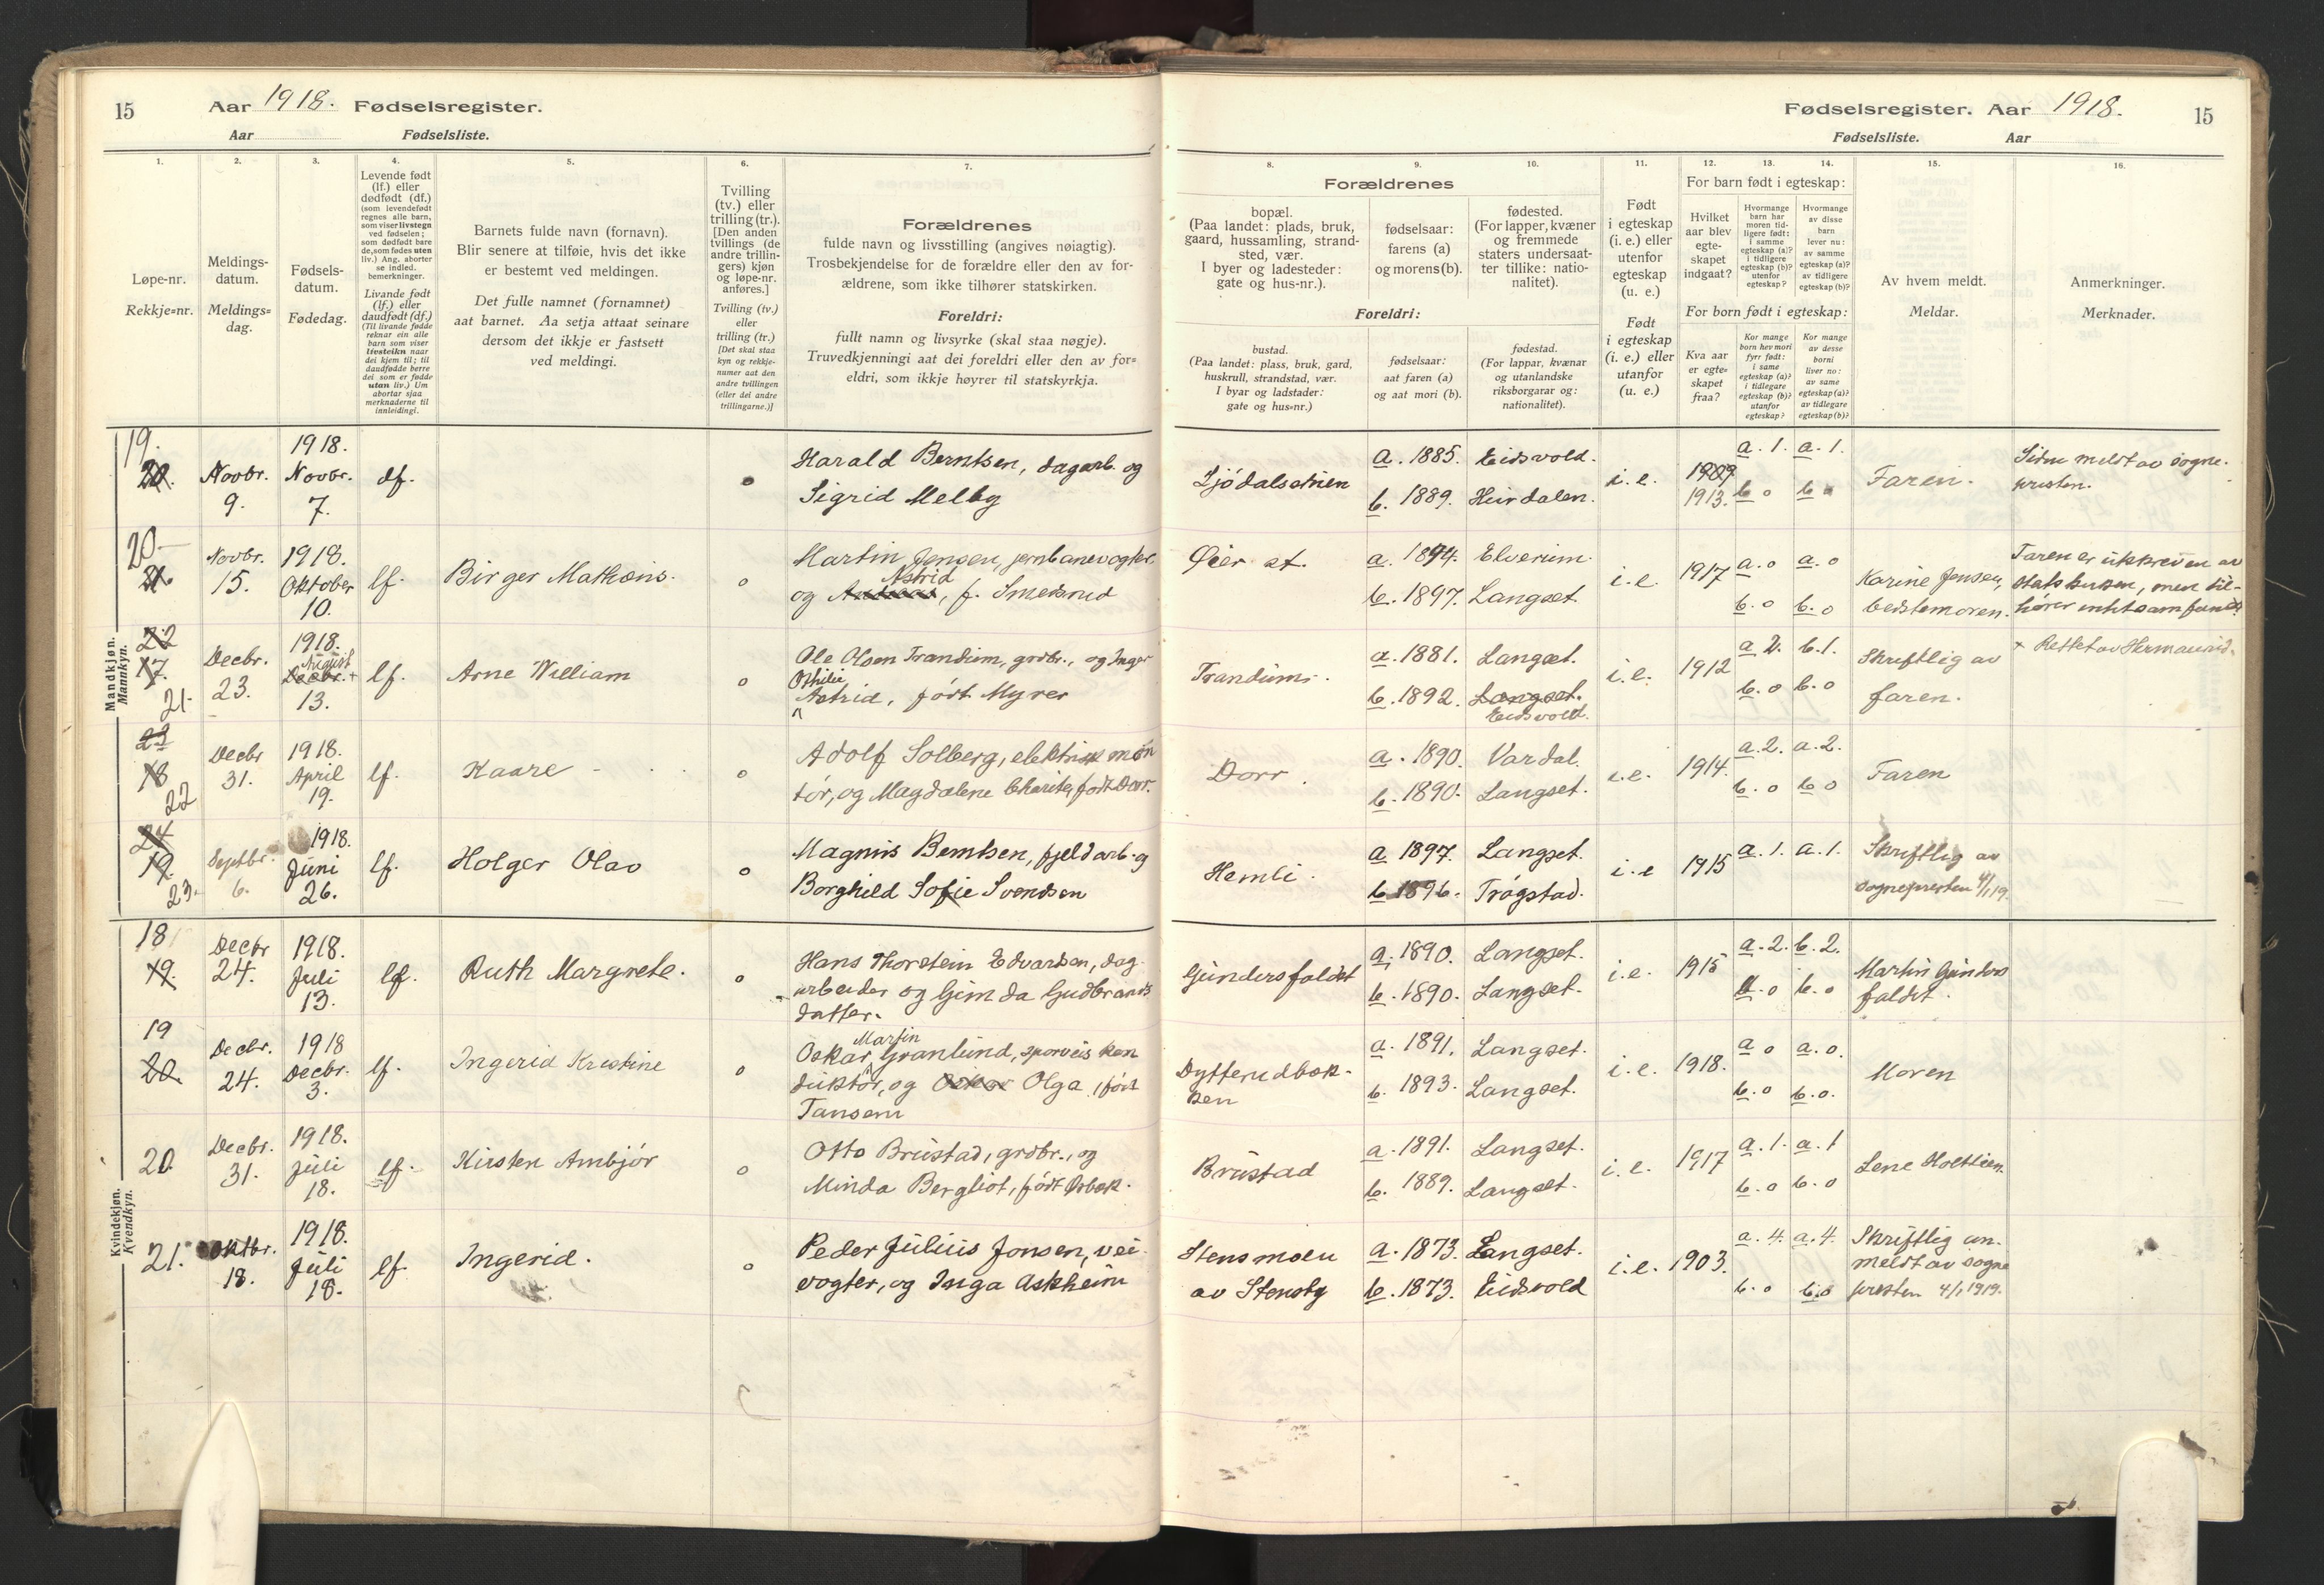 15
Aar 1918. Fødselsregister.
Aar
Fødselsliste.
1.
2.
3.
4.
5.
6.
7.
Løpe-nr.
Rekkje=nr.
Meldings-
datum.
Meldings=
dag.
Fødsels-
datum.
Fødedag.
Levende født
(lf.) eller
dødfødt (df.)
(som levendefødt
regnes alle barn,
som viser livstegn
ved fødselen;
som dødfødt bare
de, som fødes uten
liv.) Ang. aborter
se indled.
bemerkninger.
Livande født
(lf.) eller
daudfødt (df.)
(Til livande fødde
reknar ein alle
barn som viser
livsteikn naar
dei kjem til; til
daudfødde berre
dei som er fødde
utan liv.) Um
abortar sjaa
merknaderne til
innleidingi.
Barnets fulde navn (fornavn).
Blir senere at tilføie, hvis det ikke
er bestemt ved meldingen.
Det fulle namnet (fornamnet)
aat barnet. Aa setja attaat seinare
dersom det ikkje er fastsett
ved meldingi.
Tvilling
(tv.) eller
trilling (tr.).
[Den anden
tvillings (de
andre trillin-
gers) kjøn
og løpe-nr.
anføres.]
Tvilling (tv.)
eller
trilling (tr.)
[Det skal staa
kyn og rekkje-
numer aat den
andre tvillingen
(eller dei andre
trillingarne.)]
Forældrenes
fulde navn og livsstilling (angives nøiagtig).
Trosbekjendelse for de forældre eller den av for-
ældrene, som ikke tilhører statskirken.
Foreldri:
fullt namn og livsyrke (skal staa nøgje).
Truvedkjenningi aat dei foreldri eller den av for=
eldri, som ikkje høyrer til statskyrkja.
Fødselsregister. Aar 1918.
15
Fødselsliste.
Aar
8.
9.
10.
11.
12.
13.
14.
15.
16.
Forældrenes
bopæl.
(Paa landet: plads, bruk,
gaard, hussamling, strand-
sted, vær.
I byer og ladesteder:
gate og hus-nr.).
fødselsaar:
farens (a)
og morens (b).
fødested.
(For lapper, kvæner
og fremmede
staters undersaat-
ter tillike: natio-
nalitet).
Foreldri:
bustad.
(Paa landet: plass, bruk, gard,
huskrull, strandstad, vær.
I byar og ladstader:
gate og hus=nr.)
fødselsaar:
aat faren (a)
og aat mori (b).
fødestad.
(For lappar, kvænar
og utanlandske
riksborgarar og:
nationalitet).
Født
i egteskap
(i. e.) eller
utenfor
egteskap
(u. e.)
Født
i egteskap
(i. e.) eller
utanfor
(u. e.)
For barn født i egteskap:
Hvilket
aar blev
egte-
skapet
indgaat?
Hvormange
barn har
moren tid-
ligere født:
i samme
egteskap (a)?
i tidligere
egteskap (b)?
utenfor
egteskap?
Hvormange
av disse
barn
lever nu:
av samme
egteskap (a)?
av tidligere
egteskap (b)?
For born født i egteskap:
Kva aar
er egte=
skapet
fraa?
Kor mange
born hev mori
fyrr født:
i same
egteskap (a)?
i tidlegare
egteskap (b)?
utanfor
egteskap?
Kor mange
av desse
borni
liver no:
av same
egteskap (a)?
av tidlegare
egteskap (b)?
Av hvem meldt.
Meldar.
Anmerkninger.
Merknader.
Mandkjøn.
Mannkyn.
19.
20.
Novbr.
9.
1918.
Novbr.
7.
df.
o
Harald Berntsen, dagarb. og
Sigrid Melby
a. 1885. Eidsvold.
b. 1889.
i.e.
1909
1913.
a. 1. a. 1.
b o b o
Faren.
Siden meldt av sogne-
presten.
20
Novbr.
15.
1918.
Oktober
10.
lf.
Birger Mathæus.
o
Martin Jensen, jernbanevogter,
Astrid
og, f. Smedsrud
Øier st.
a. 1894. Elverum.
b. 1897. Langset.
i.e.
1917
a. o a. o
b. o b. o
Karine Jensen,
bedstemoren.
Faren er utskreven av
statskirken, men til-
hører intet samfund.
22
17.
21.
Decbr.
23.
1918.
August
Decbr. +
13.
lf.
Arne William
o
Ole Olsen Trandum, grdbr., og Inger
Othilie
Astrid, født Myrer
Trandum.
a. 1881. Langset.
b. 1892. Langset.
Eidsvold.
i.e.
1912
a 2. b. 1.
b. o b. o
Skriftlig av
faren.
+ Rettet av Hermanrud.
23
18
22
Decbr
31.
1918.
April
19.
lf.
Kaare
o
Adolf Solberg, elektrisk mon
tør, og Magdalene Charite, født Dorr.
Dorr.
a. 1890. Vardal.
b. 1890. Langset.
i.e.
1914.
a. 2. a. 2.
b. o b o
Faren
24
19.
23.
Septbr.
6.
1918.
Juni
26.
lf.
Holger Olav
o
Magnus Berntsen, fjeldarb. og
Borghild Sofie Svendsen
Hemli.
a 1897. Langset.
b 1896. Trøgstad.
i.e
1915
a. 1. a. 1.
Skriftlig av
sognepresten 4/1 19.
Kvindekjøn.
Kvendkyn.
18
19.
Decbr
24.
1918.
Juli
13.
lf.
Ruth Margrete.
o
Hans Thorstein Edvardsen, dag-
arbeider og Gunda Gudbrands
datter.
Gundersfaldet
a. 1890. Langset.
b. 1890. Langset.
i.e.
1915
a. 2. b. 2.
b. o b. o
Martin Gunders
faldet.
19
20.
Decbr.
24.
1918
Decbr.
3.
lf.
Ingerid Kristine
o
Martin
Oskar Granlund, sporveis kon
duktør, og Oskar Olga, født
Tansem
Dytterudbak-
ken
a. 1891. Langset.
b. 1893. Langset.
i.e.
1918.
a o a. o.
b. o b. o.
Moren
20.
Decbr.
31.
1918.
Juli
18.
lf.
Kirsten Ambjør
o
Otto Brustad, grdbr., og
Minda Bergliot, født Orbæk.
Brustad
a. 1891. Langset.
b. 1889. Langset.
i.e.
1917
a. 1. a. 1
b. o b. o
Lene Holtlien
21.
Oktbr.
18.
1918.
Juli
18.
lf.
Ingerid.
o
Peder Julius Jonsen, vei-
vogter, og Inga Askheim
Stensmoen
av Stensby
a. 1873. Langset.
b. 1873. Eidsvold
i.e.
1903.
a. 4. a. 4.
b. o b. o
Skriftlig an-
meldt av sogne
presten 4/1 1919.